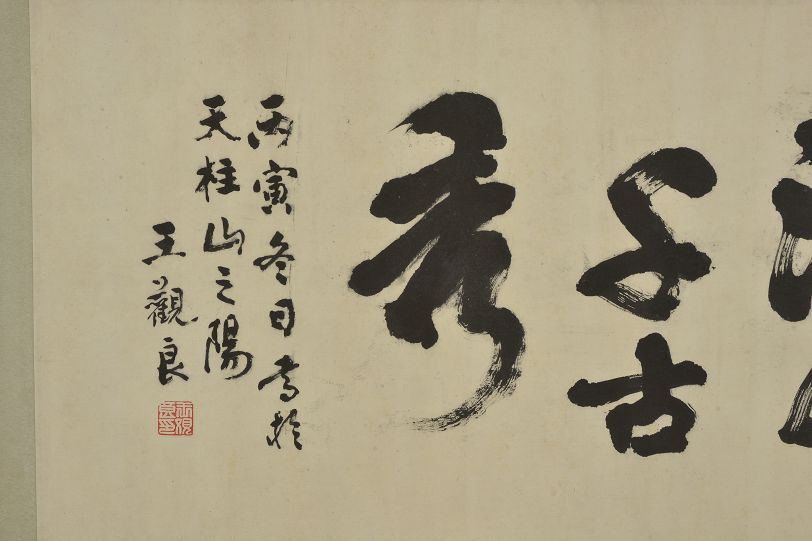 千古
秀
丙寅冬日書於
天柱山之陽
王觀良